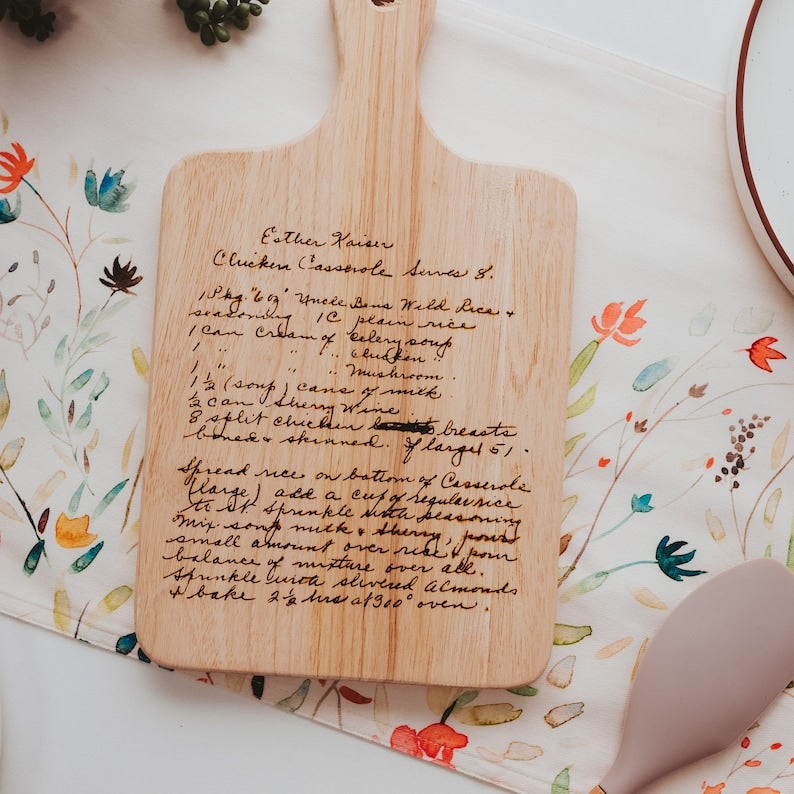 Esther Kaiser
Chicken Casserole Serves 8.
1 Pkg. "6 oz" Uncle Bens Wild Rice +
seasoning 1 C plain rice
1 can Cream of Celery soup
1 " " " Chicken "
1 " " " Mushroom.
1 ½ (soup) cans of milk
½ can Sherry Wine
8 split chicken breasts
boned & skinned. if large
Spread rice on bottom of Casserole
(large) add a cup of regular rice
to it. Sprinkle with seasoning
Mix soup milk & Sherry, pour
small amount over rice, pour
balance of mixture over all.
Sprinkle with slivered Almonds
& bake 2 ½ hrs at 300° oven.